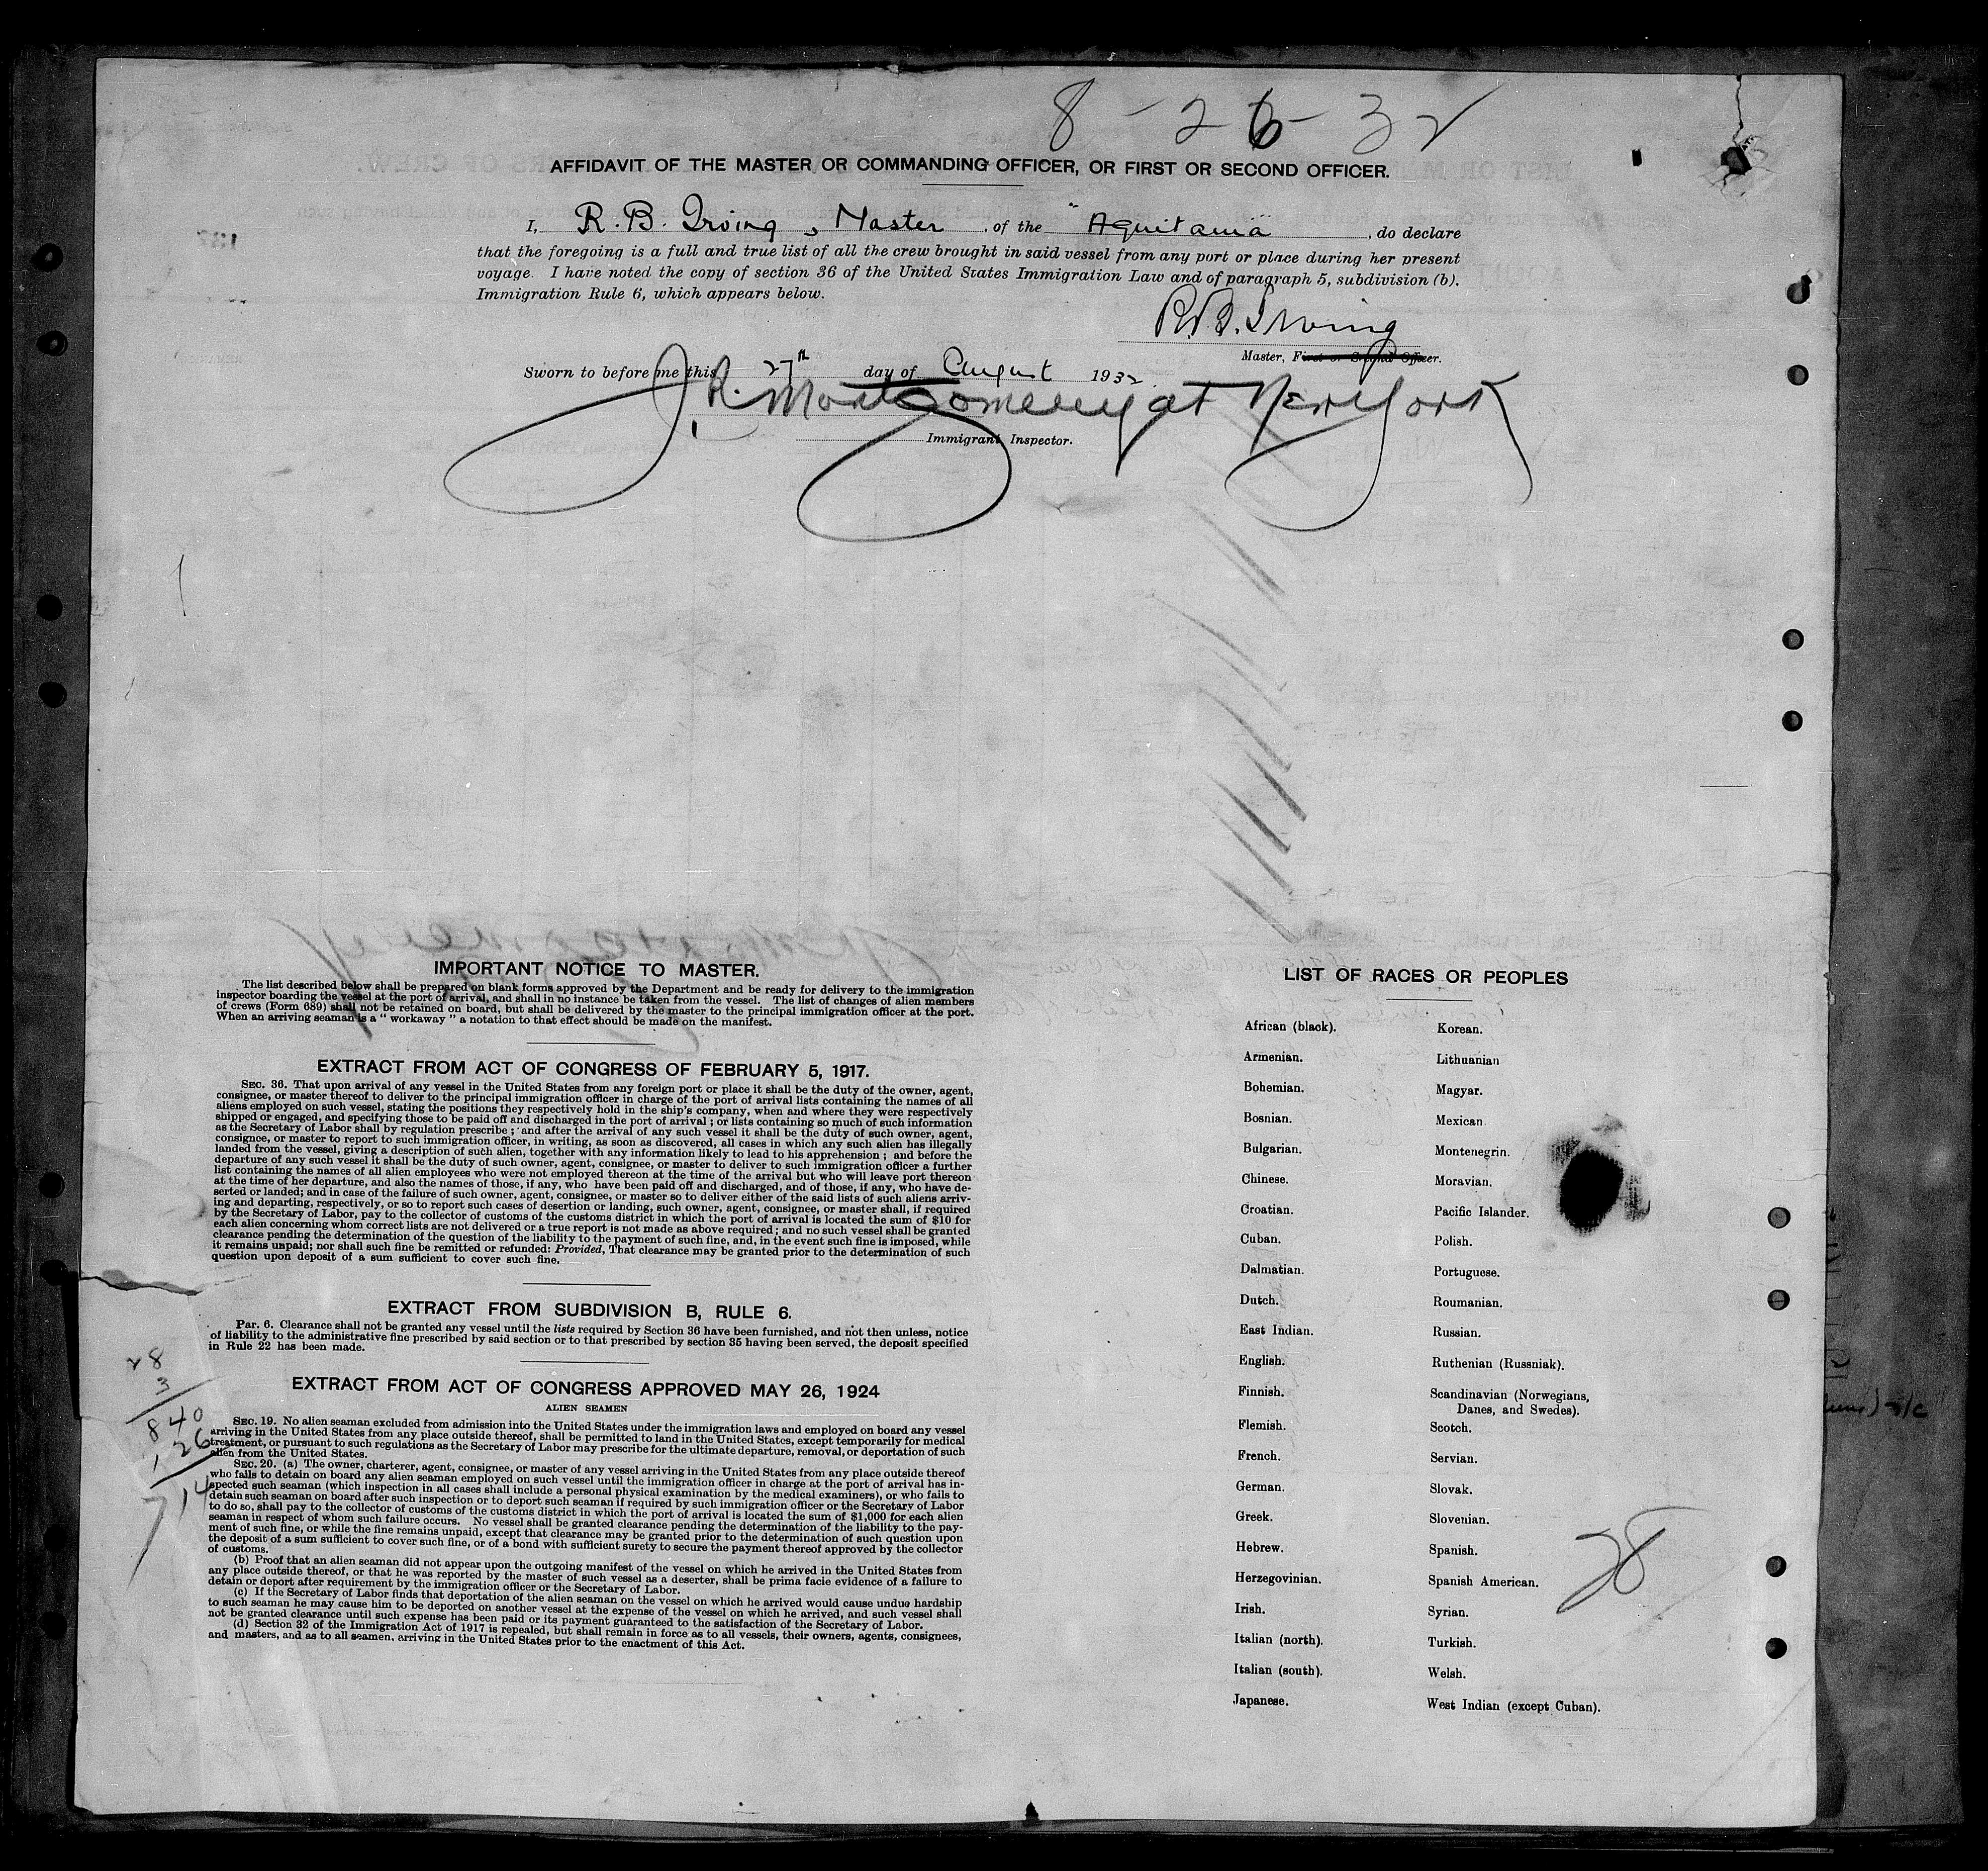 8-26-32
AFFIDAVIT OF THE MASTER OR COMMANDING OFFICER, OR FIRST OR SECOND OFFICER.
I, R. B. Irving, Master, of the "Aquitania", do declare
that the foregoing is a full and true list of all the crew brought in said vessel from any port or place during her present
voyage. I have noted the copy of section 36 of the United States Immigration Law and of paragraph 5, subdivision (b),
Immigration Rule 6, which appears below.
R.B. Irving
Master, First or Second Officer.
Sworn to before me this 27th day of August 1932.
J. R. Montgomery at New York
Immigrant Inspector.
IMPORTANT NOTICE TO MASTER.
The list described below shall be prepared on blank forms approved by the Department and be ready for delivery to the immigration
inspector boarding the vessel at the port of arrival, and shall in no instance be taken from the vessel. The list of changes of alien members
of crews (Form 689) shall not be retained on board, but shall be delivered by the master to the principal immigration officer at the port.
When an arriving seaman is a "workaway" a notation to that effect should be made on the manifest.
EXTRACT FROM ACT OF CONGRESS OF FEBRUARY 5, 1917.
SEC. 36. That upon arrival of any vessel in the United States from any foreign port or place it shall be the duty of the owner, agent,
consignee, or master thereof to deliver to the principal immigration officer in charge of the port of arrival lists containing the names of all
aliens employed on such vessel, stating the positions they respectively hold in the ship's company, when and where they were respectively
shipped or engaged, and specifying those to be paid off and discharged in the port of arrival; or lists containing so much of such information
as the Secretary of Labor shall by regulation prescribe; and after the arrival of any such vessel it shall be the duty of such owner, agent,
consignee, or master to report to such immigration officer, in writing, as soon as discovered, all cases in which any such alien has illegally
landed from the vessel, giving a description of such alien, together with any information likely to lead to his apprehension; and before the
departure of any such vessel it shall be the duty of such owner, agent, consignee, or master to deliver to such immigration officer a further
list containing the names of all alien employees who were not employed thereon at the time of the arrival but who will leave port thereon
at the time of her departure, and also the names of those, if any, who have been paid off and discharged, and of those, if any, who have de-
serted or landed; and in case of the failure of such owner, agent, consignee, or master so to deliver either of the said lists of such aliens arriv-
ing and departing, respectively, or so to report such cases of desertion or landing, such owner, agent, consignee, or master shall, if required
by the Secretary of Labor, pay to the collector of customs of the customs district in which the port of arrival is located the sum of $10 for
each alien concerning whom correct lists are not delivered or a true report is not made as above required; and no such vessel shall be granted
clearance pending the determination of the question of the liability to the payment of such fine, and, in the event such fine is imposed, while
it remains unpaid; nor shall such fine be remitted or refunded: Provided, That clearance may be granted prior to the determination of such
question upon deposit of a sum sufficient to cover such fine.
EXTRACT FROM SUBDIVISION B, RULE 6.
Par. 6. Clearance shall not be granted any vessel until the lists required by Section 36 have been furnished, and not then unless, notice
of liability to the administrative fine prescribed by said section or to that prescribed by section 35 having been served, the deposit specified
in Rule 22 has been made.
EXTRACT FROM ACT OF CONGRESS APPROVED MAY 26, 1924
ALIEN SEAMEN
SEC. 19. No alien seaman excluded from admission into the United States under the immigration laws and employed on board any vessel
arriving in the United States from any place outside thereof, shall be permitted to land in the United States, except temporarily for medical
treatment, or pursuant to such regulations as the Secretary of Labor may prescribe for the ultimate departure, removal, or deportation of such
alien from the United States.
SEC. 20. (a) The owner, charterer, agent, consignee, or master of any vessel arriving in the United States from any place outside thereof
who fails to detain on board any alien seaman employed on such vessel until the immigration officer in charge at the port of arrival has in-
spected such seaman (which inspection in all cases shall include a personal physical examination by the medical examiners), or who fails to
detain such seaman on board after such inspection or to deport such seaman if required by such immigration officer or the Secretary of Labor
to do so, shall pay to the collector of customs of the customs district in which the port of arrival is located the sum of $1,000 for each alien
seaman in respect of whom such failure occurs. No vessel shall be granted clearance pending the determination of the liability to the pay-
ment of such fine, or while the fine remains unpaid, except that clearance may be granted prior to the determination of such question upon
the deposit of a sum sufficient to cover such fine, or of a bond with sufficient surety to secure the payment thereof approved by the collector
of customs.
(b) Proof that an alien seaman did not appear upon the outgoing manifest of the vessel on which he arrived in the United States from
any place outside thereof, or that he was reported by the master of such vessel as a deserter, shall be prima facie evidence of a failure to
detain or deport after requirement by the immigration officer or the Secretary of Labor.
(c) If the Secretary of Labor finds that deportation of the alien seaman on the vessel on which he arrived would cause undue hardship
to such seaman he may cause him to be deported on another vessel at the expense of the vessel on which he arrived, and such vessel shall
not be granted clearance until such expense has been paid or its payment guaranteed to the satisfaction of the Secretary of Labor.
(d) Section 32 of the Immigration Act of 1917 is repealed, but shall remain in force as to all vessels, their owners, agents, consignees,
and masters, and as to all seamen, arriving in the United States prior to the enactment of this Act.
28
3
840
126
714
LIST OF RACES OR PEOPLES
African (black).
Armenian.
Bohemian.
Bosnian.
Bulgarian.
Chinese.
Croatian.
Cuban.
Dalmatian.
Dutch.
East Indian.
English.
Finnish.
Flemish.
French.
German.
Greek.
Hebrew.
Herzegovinian.
Irish.
Italian (north).
Italian (south).
Japanese.
Korean.
Lithuanian
Magyar.
Mexican
Montenegrin.
Moravian.
Pacific Islander.
Polish.
Portuguese.
Roumanian.
Russian.
Ruthenian (Russniak).
Scandinavian (Norwegians,
Danes, and Swedes).
Scotch.
Servian.
Slovak.
Slovenian.
Spanish.
Spanish American.
Syrian.
Turkish.
Welsh.
West Indian (except Cuban).
28